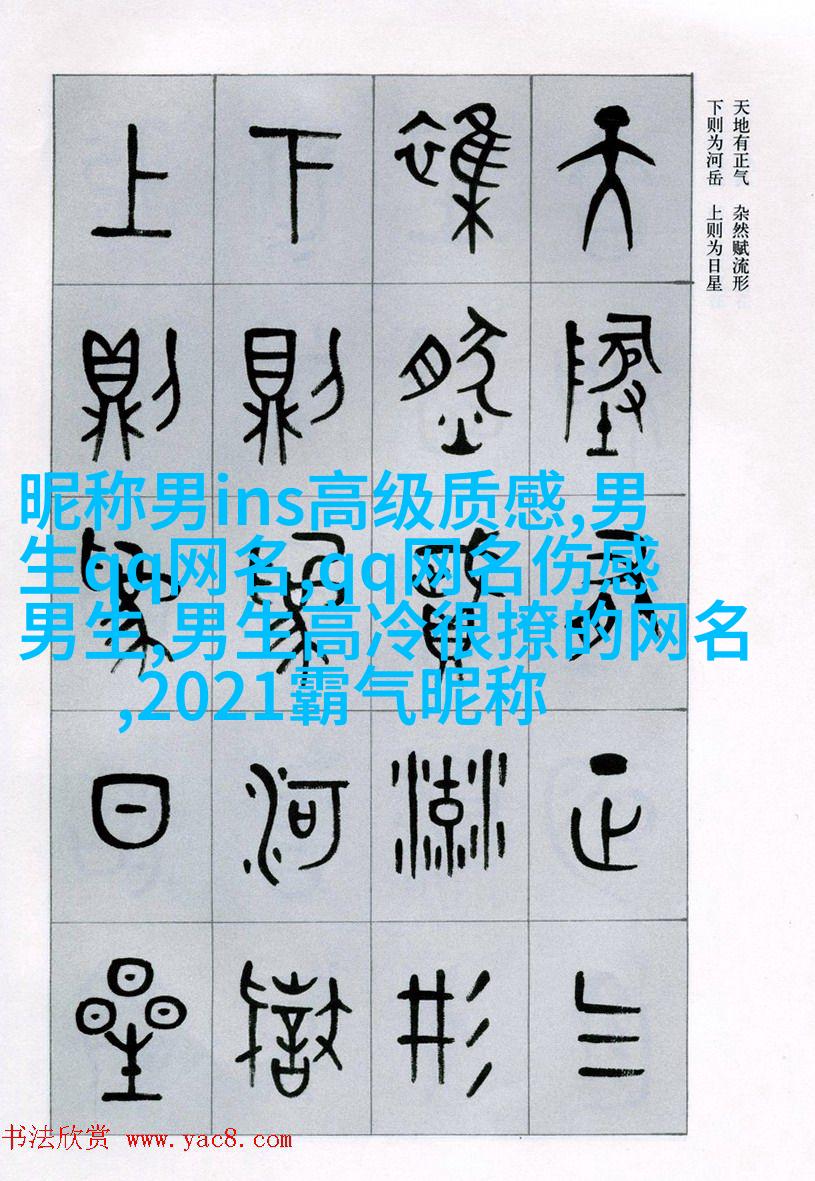 天地有正气 杂然赋流形
下则为河岳 上则为日星
天地有正气
雜然賦流形
下則為河嶽
上則為日星
昵称男ins高级质感,男
生qq网名,qq网名伤感
男生,男生高冷很撩的网名
,2021霸气昵称
书法欣赏 www.yac8.com